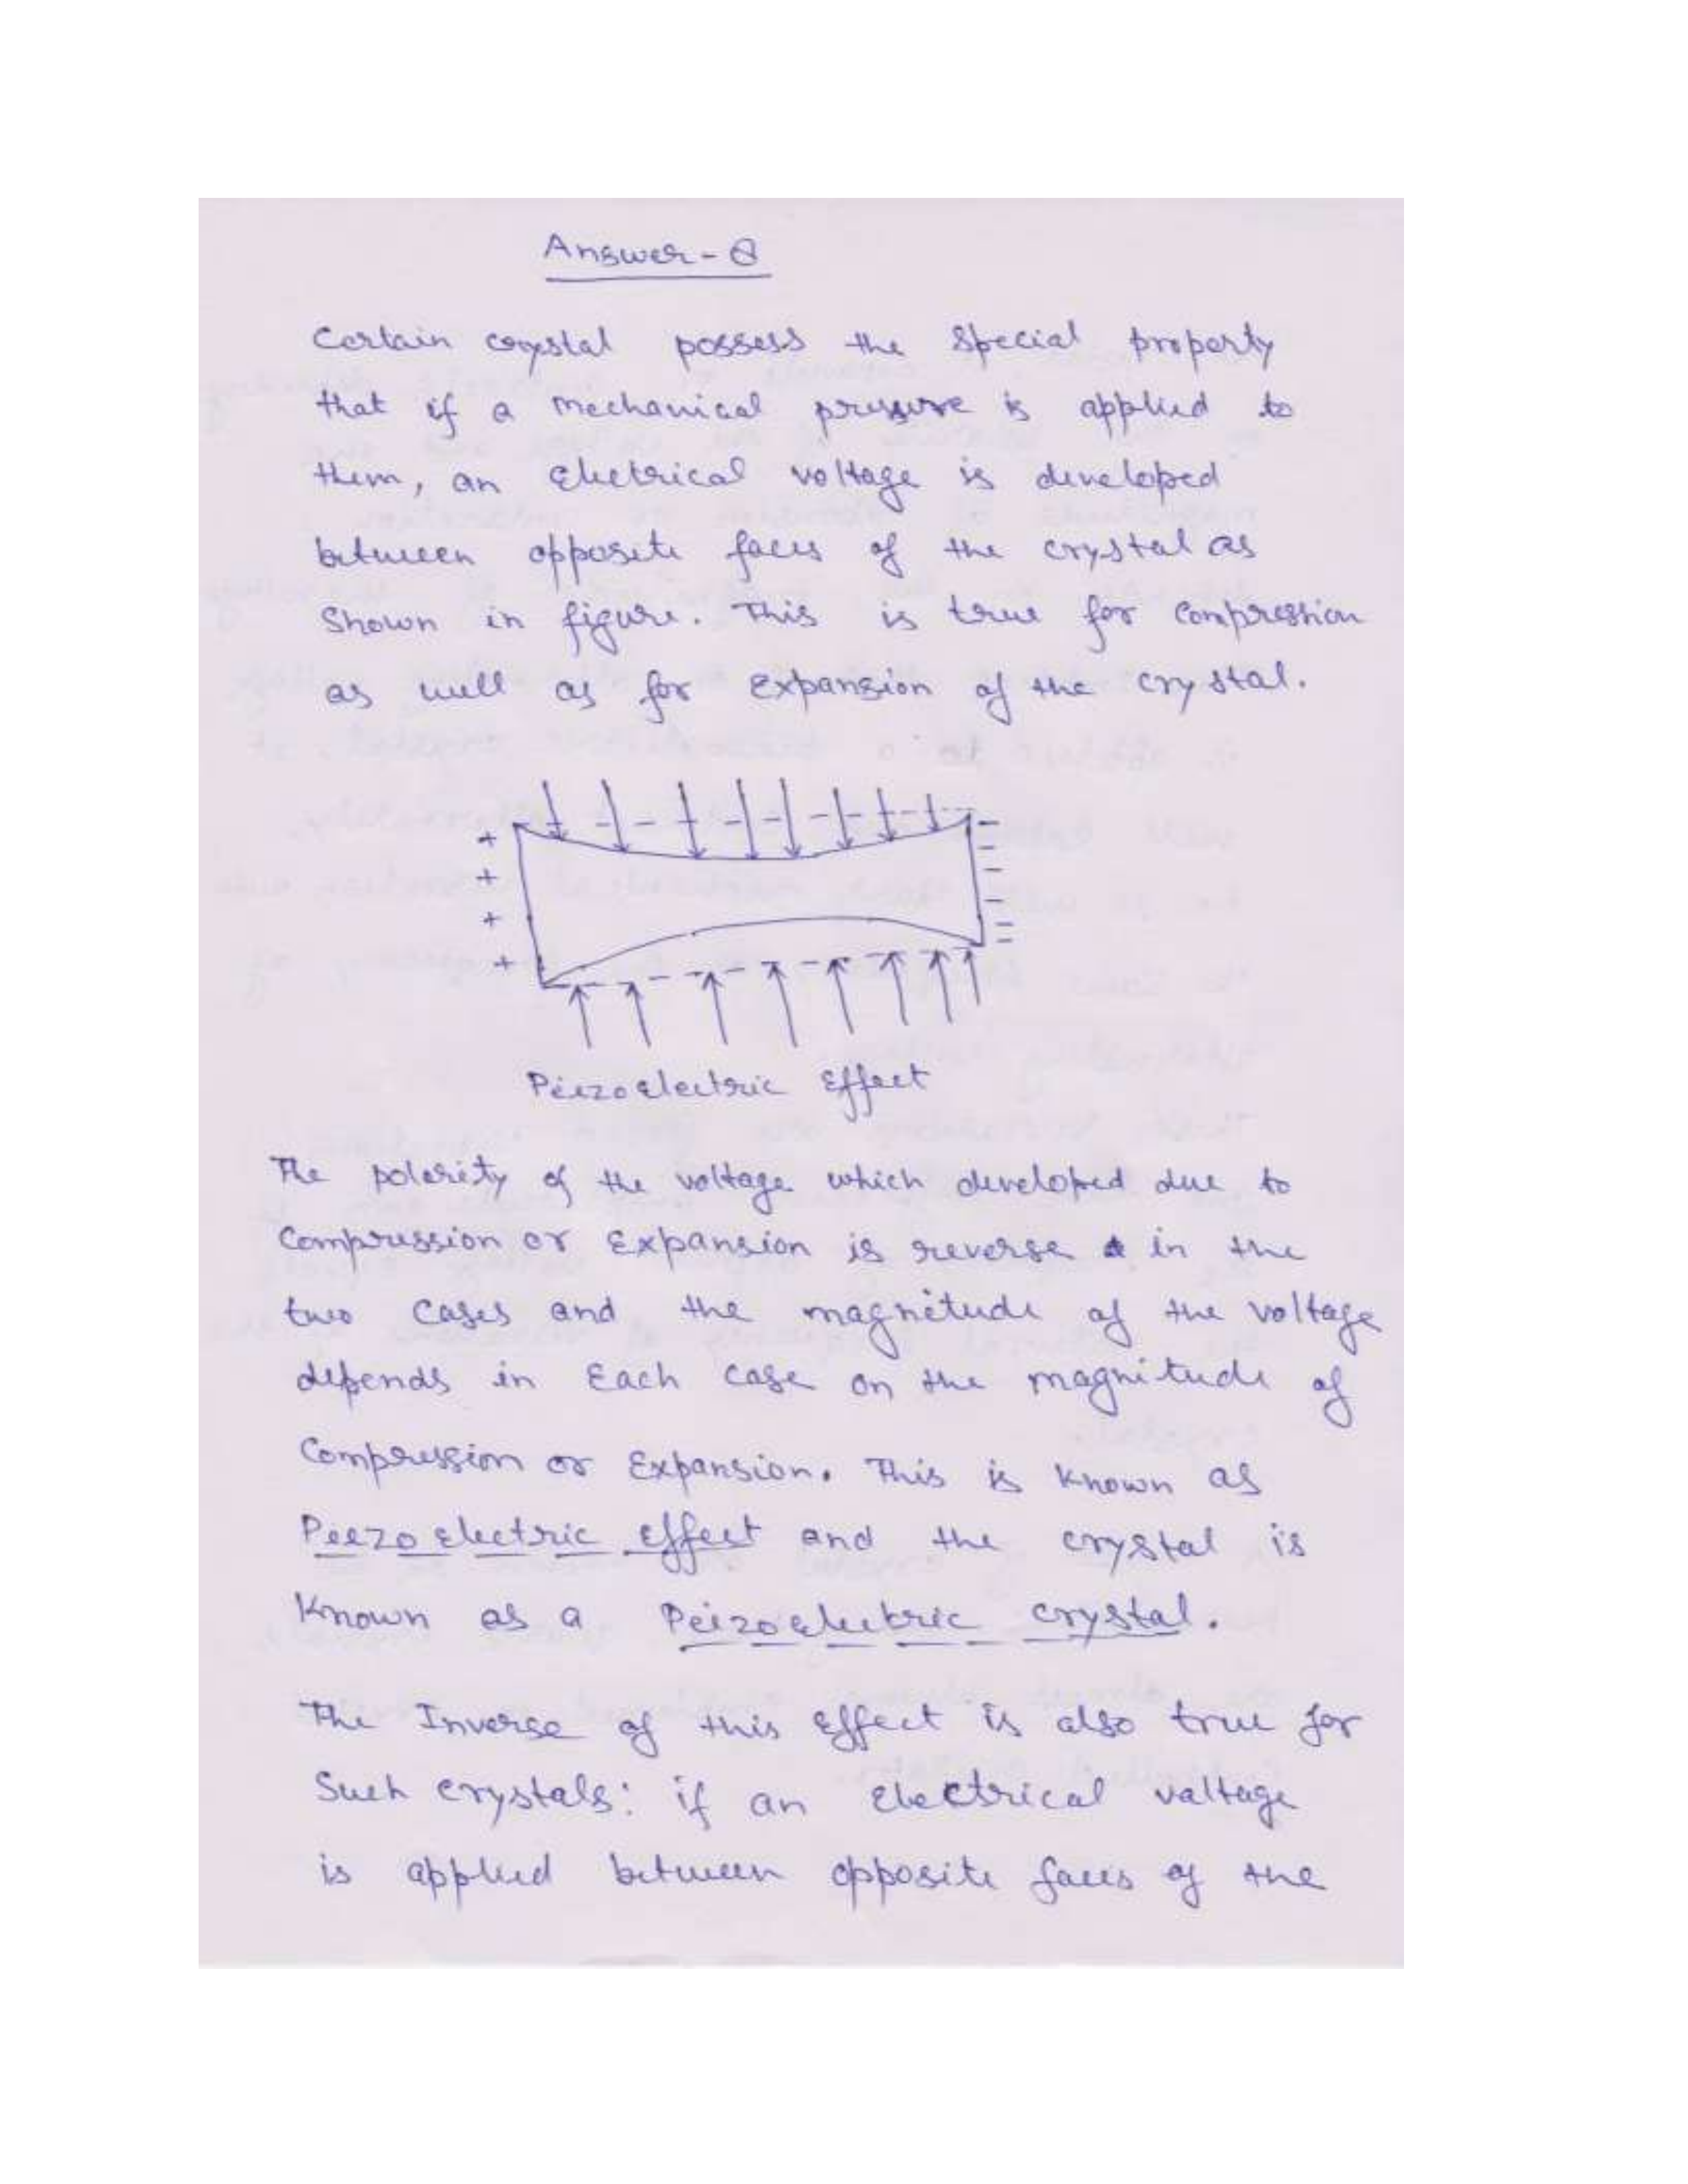 Answer - 8
Certain crystal possess the special property
that if a mechanical pressure is applied to
them, an electrical voltage is developed
between opposite faces of the crystal as
shown in figure. This is true for compression
as well as for expansion of the crystal.
+ + + +
Peizoelectric Effect
The polarity of the voltage which developed due to
compression or expansion is reverse in the
two cases and the magnitude of the voltage
depends in each case on the magnitude of
compression or expansion. This is known as
Peezo electric effect and the crystal is
known as a Peizoelectric crystal.
The Inverse of this effect is also true for
such crystals: if an electrical voltage
is applied between opposite faces of the